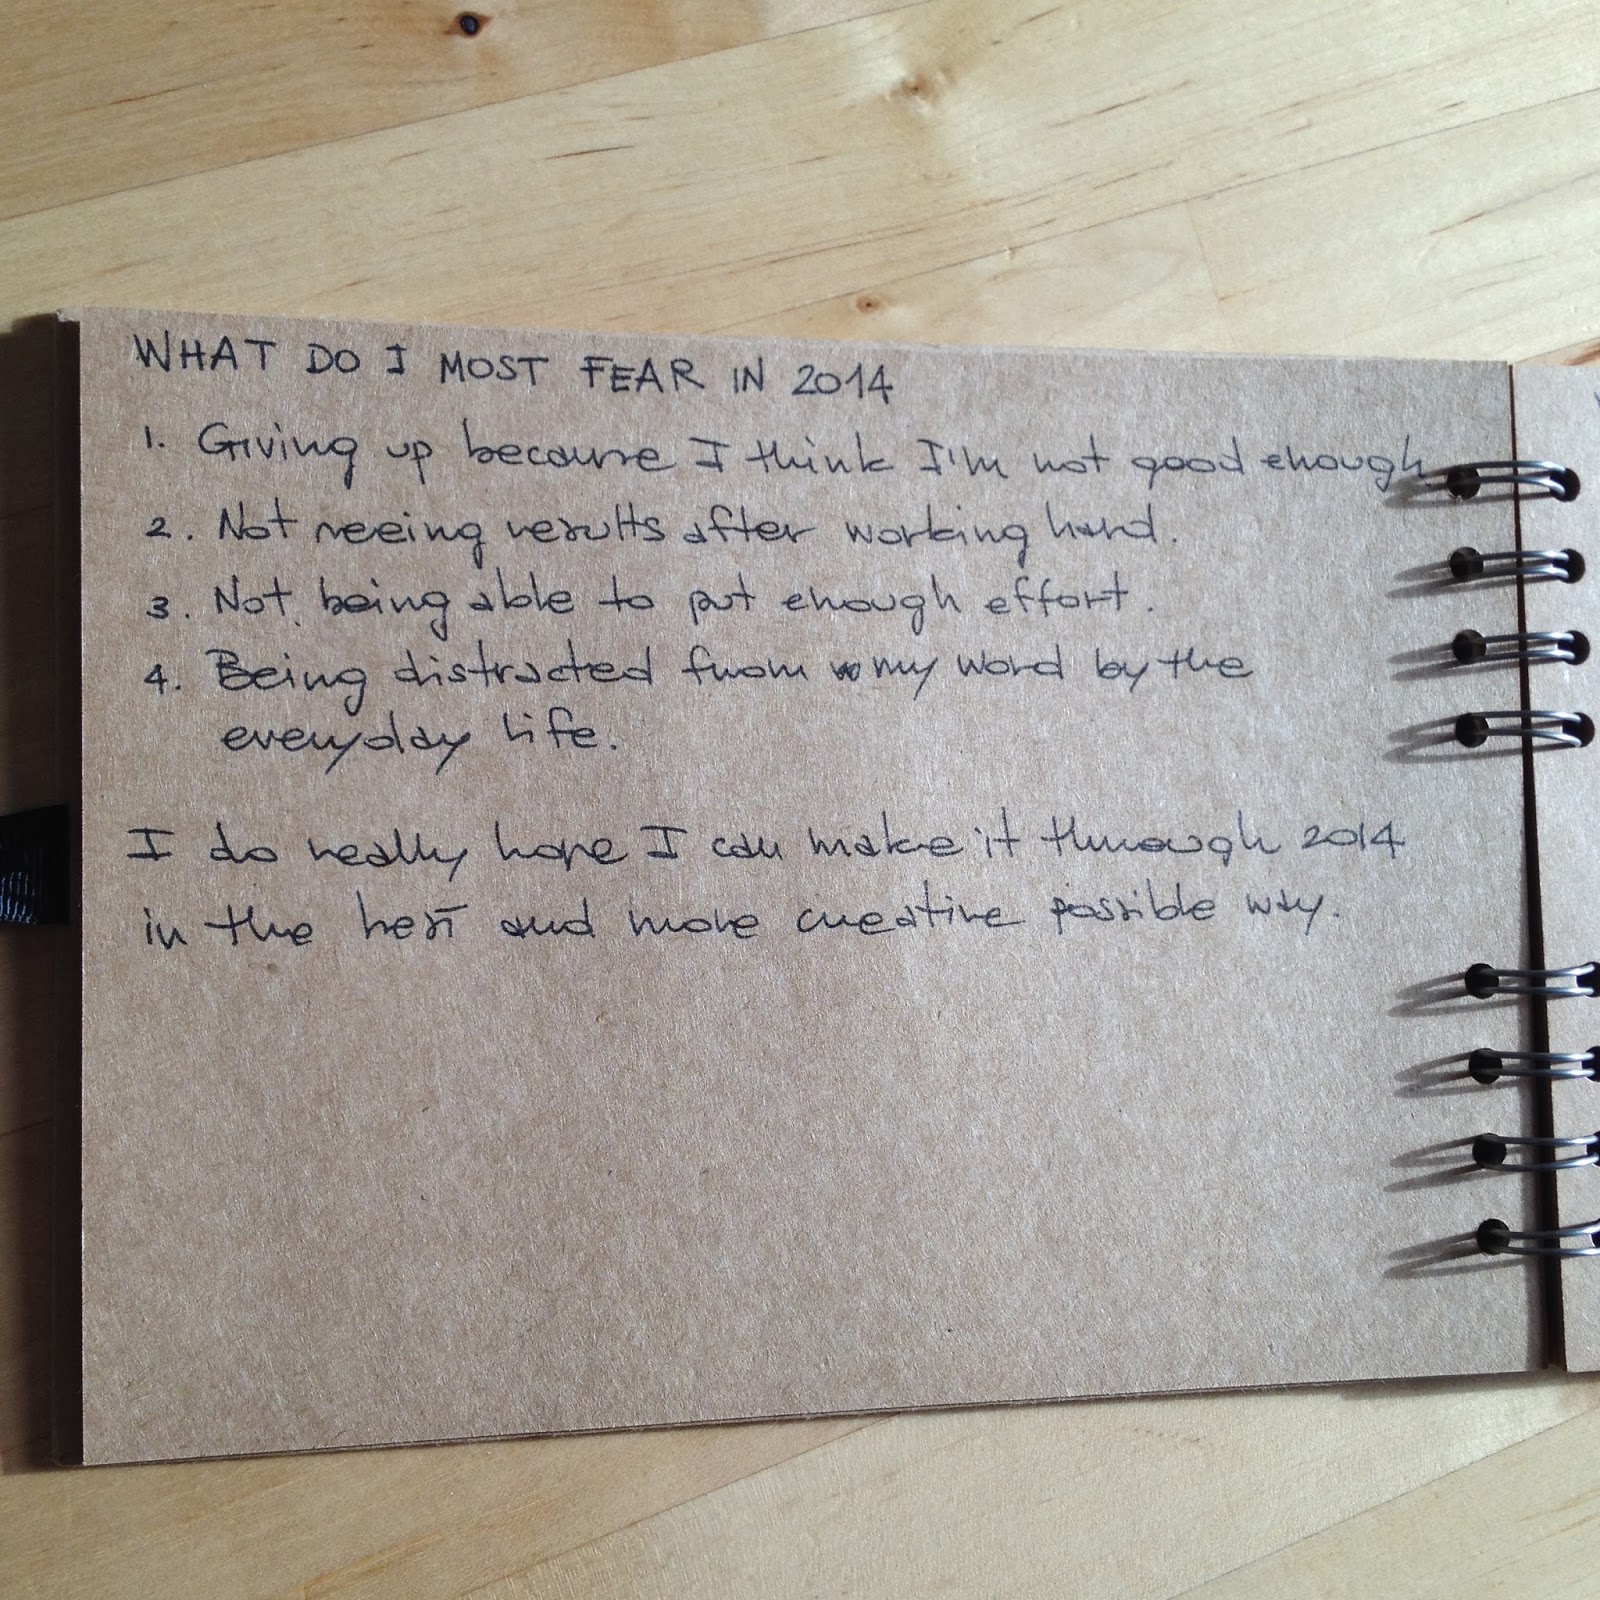 WHAT DO I MOST FEAR IN 2014
1. Giving up because I think I'm not good enough
2. Not seeing results after working hard.
3. Not being able to put enough effort.
4. Being distracted from my word by the
everyday life.
I do really hope I can make it through 2014
in the best and more creative possible way.